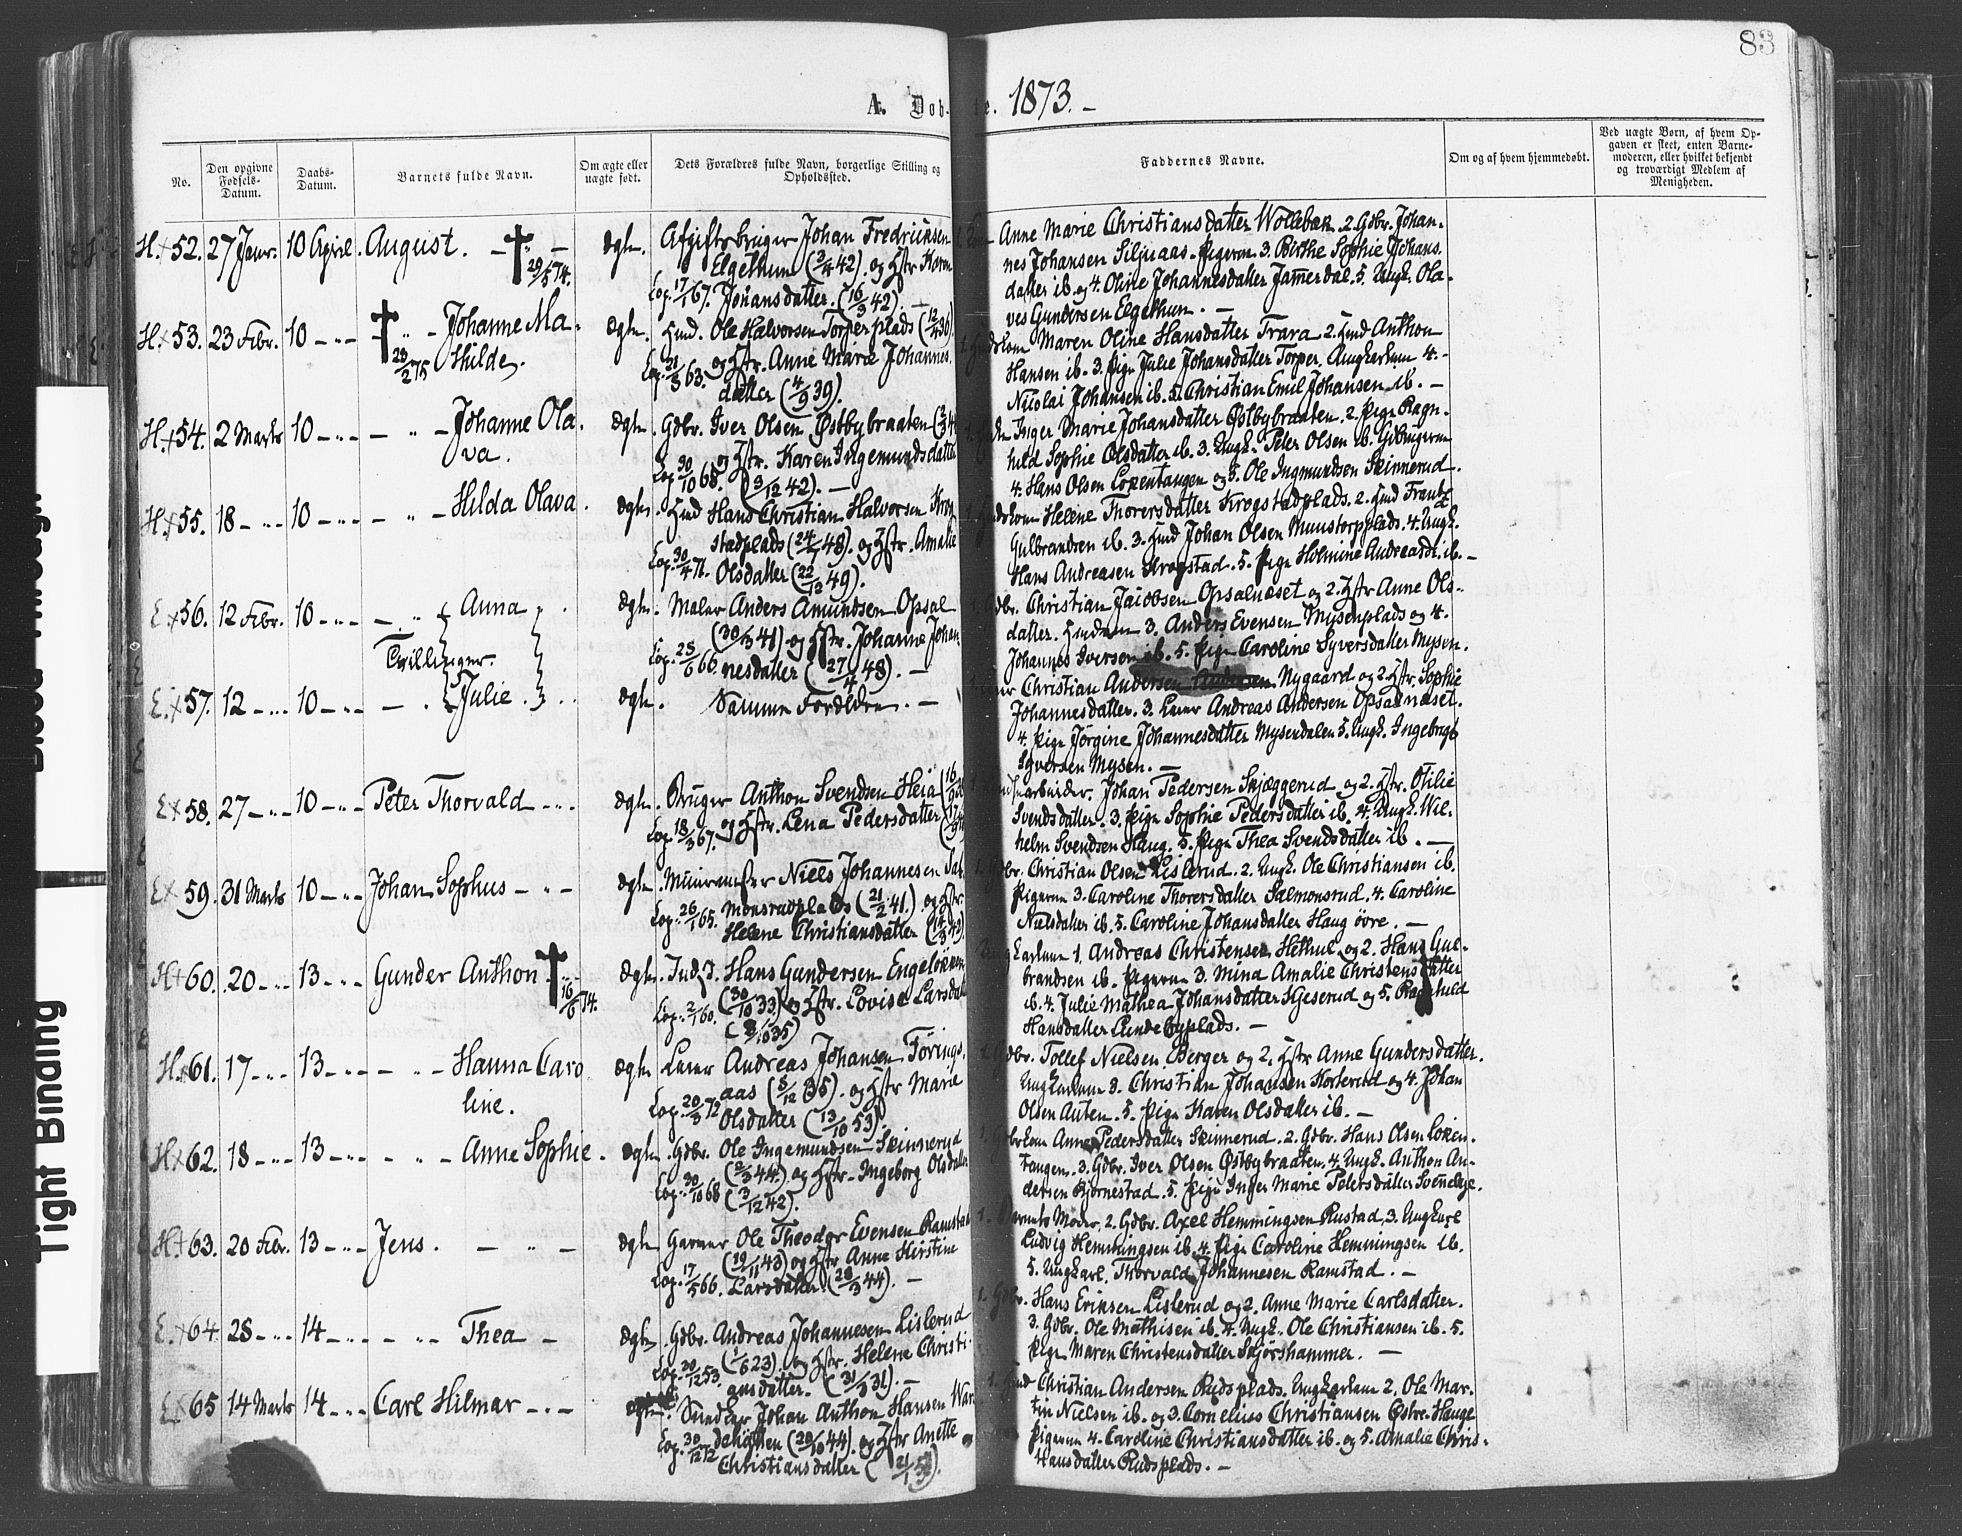 83
A. Døb- te. 1873. -
No.
Den opgivne Fødsels-Datum.
Daabs-Datum.
Barnets fulde Navn.
Om ægte eller uægte født.
Dets Forældres fulde Navn, borgerlige Stilling og Opholdssted.
Faddernes Navne.
Om og af hvem hjemmedøbt.
Ved uægte Børn, af hvem Op-
gaven er skeet, enten Barne-
moderen, eller hvilket bekjendt
og troværdigt Medlem af
Menigheden.
H. + 52. 27 Janr. 10 April. August. - † - ægte. Afgiftsbruger Johan Fredriksen
29/5 74. Elgethun (2/4 42). og Hstr. Karen
Cop. 17/1 67. Johansdatter. (16/3 42). -
Anne Marie Christiansdatter Wollebæk. 2. Gdbr. Johan-
nes Johansen Siljuaas. Pigerne 3. Birthe Sophie Johans.
datter ib. og 4. Oline Johannesdatter Jammerdal. 5. Ungk. Ola-
ves Gundersen Elgethun. -
H. + 53. 23 Febr. 10 - " - † " - Johanne Ma- ægte. Hmd. Ole Halvorsen Torperplads (12/4 36)
thilde. og Hstr. Anne Marie Johannes.
Cop. 21/3 63. datter (4/9 39).
Maren Oline Hansdatter Trara 2. Hmd Anthon
Hansen ib. 3. Pige Julie Johansdatter Torper. Ungkarlene 4. -
Nicolai Johansen ib. 5. Christian Emil Johansen ib. -
H. + 54. 2 Marts 10 - " - - " - Johanne Ola- ægte. Gdbr. Iver Olsen Østbybraaten
va. og Hstr. Karen Ingemundsdatter
Cop. 30/10 68. (3/12 42). -
Inger Marie Johansdatter Østbybraaten. 2. Pige Ragn-
hild Sophie Olsdatter ib. 3. Ungk. Peter Olsen ib. Gdbrugerne
4. Hans Olsen Lorentangen og 5. Ole Ingmundsen Skinnerud.
H. + 55. 18 - " - 10 - " - - " - Hilda Olava. ægte. Hmd Hans Christian Halvorsen Krog-
stadplads (24/1 48). og Hstr. Amalie
Cop. 30/4 71. Olsdatter (22/12 49).
Helene Thorersdatter Krogstadplads. 2. Hmd Frantz
Gulbrandsen ib. 3. Hmd Johan Olsen Munstorpplads. 4. Ungk.
Hans Andreasen Krogstad. 5. Pige Holmine Andreasdr. ib. -
E. + 56. 12 Febr. 10 - " - - " - { Anna } ægte. Maler Anders Amundsen Opsal
(30/3 41) og Hstr. Johanne Johan-
Cop. 28/6 66. nesdatter (27/4 48). -
Tvillinger.
1. Gdbr. Christian Jacobsen Opsalneset og 2. Hstr Anne Ols-
datter. 3. Anders Evensen Mysenplads og 4.
Johannes Iversen ib. 5. Pige Caroline Syversdatter Mysen.
E. + 57. 12 - " - 10 - " - - . { Julie. } ægte. Samme Forældre. -
Christian Andersen Nygaard og 2. Hstr. Sophie
Johannesdatter. 3. Leier Andreas Andersen Opsalneset.
4. Pige Jørgine Johannesdatter Mysendalen 5. Ungk. Ingebrigt
Syversen Mysen. -
E + 58. 27 - " - 10 - " - Peter Thorvald - " - ægte. Bruger Anthon Svendsen Heia
og Hstr. Lena Pedersdatter
Cop. 18/3 67.
arbeider. Johan Pedersen Skjæggerud og 2. Hstr. Otilie
Svendsdatter. 3. Pige Sophie Pedersdatter ib. 4. Ungk. Wil-
helm Svendsen Haug. 5. Pige Thea Svendsdatter ib. -
E + 59. 31 Marts 10 - " - Johan Sophus - " - ægte. Muurmester Niels Johannesen Sal-
monsrudplads (21/2 41.) og Hstr.
Cop. 26/1 65. Helene Christiansdatter
1. Gdbr. Christian Olsen Lislerud. 2. Ungk. Ole Christiansen ib.
Pigerne 3. Caroline Thorersdatter Salmonsrud. 4. Caroline
Nielsdatter ib. 5. Caroline Johansdatter Haug øvre. -
H + 60. 20 - " - 13 - " - Gunder Anthon † ægte. Inds. Hans Gundersen Engeløkken
16/6 74. (30/10 33) og Hstr. Lovise Larsdatter
Cop. 2/1 60. (8/10 35)
Ungkarlene 1. Andreas Christensen Hethul og 2. Hans Gul-
brandsen ib. Pigerne 3. Mina Amalie Christensdatter
ib. 4. Julie Mathea Johansdatter Kjeserud og 5. Ragnhild
Hansdatter Lundebyplads. -
H. + 61. 17 - " - 13 - " - - " - Hanna Caro- ægte Leier Andreas Johansen Førings-
line. aas (8/12 35). og Hstr Marie
Cop. 20/3 72 Olsdatter (13/10 53).
Gdbr. Tollef Nielsen Berger og 2. Hstr Anne Gundersdatter.
Ungkarlene 3. Christian Johansen Korterud og 4. Johan
Olsen Auten. 5. Pige Karen Olsdatter ib. -
H + 62. 18 - " - 13 - " - - " - Anne Sophie. ægte. Gdbr. Ole Ingemundsen Skinnerud
(2/3 44.) og Hstr. Ingeborg Olsdatter
Cop. 30/10 68 (3/12 42).
1. Gdbrkone Anne Pedersdatter Skinnerud. 2. Gdbr. Hans Olsen Loren-
tangen. 3. Gdbr. Iver Olsen Østbybraaten. 4. Ungk. Anthon An-
dersen Bjørnestad. 5. Pige Inger Marie Petersdatter Svenneby.
H + 63. 20 Febr. 13 - " - Jens. - " - ægte Garver Ole Theodor Evensen Ramstad
(19/11 43) og Hstr Anne Kirstine
Cop. 17/5 66. Larsdatter (28/3 44). -
1. Barnets Moder, 2. Gdbr. Axel Hemmingsen Rustad, 3. Ungkarl
Ludvig Hemmingsen ib. 4. Pige Caroline Hemmingsen ib.
5. Ungkarl. Thorvald Johannesen Ramstad. -
E. + 64. 28 - " - 14 - " - - " - Thea - ægte. Gdbr. Andreas Johannesen Lislerud
(1/6 23). og Hstr. Helene Christi-
Cop. 30/12 53. ansdatter. (31/3 31). -
1. Gdbr. Hans Eriksen Lislerud og 2. Anne Marie Carlsdatter.
3. Gdbr. Ole Mathisen ib. 4. Ungk. Ole Christiansen ib. 5.
Pige Maren Christensdatter Skjørshammer. -
E. 65 14 Marts 14 - " - Carl Hilmar - " - ægte. Snedker Johan Anthon Hansen
(20/10 44). og Hstr Anette
Cop. 30/12 72 Christiansdatter
1. Hmd Christian Andersen Rudsplads. Ungkarlene 2. Ole Mar-
tin Nielsen ib. og 3. Cornelius Christiansen Østre Hauge
Pigerne 4. Caroline Christiansdatter ib. og 5. Amalie Chris-
tiansdatter Rudsplads. -
Bleed Through
Tight Binding